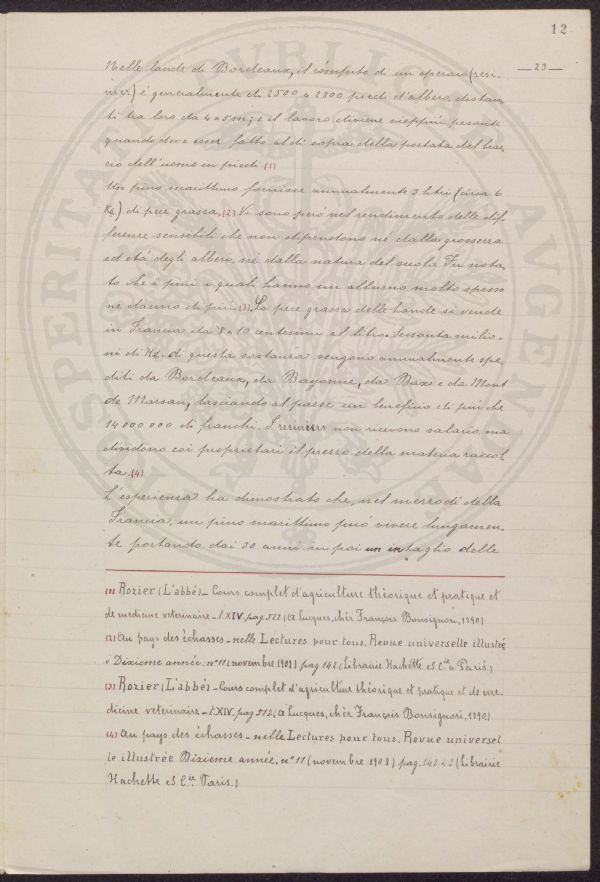 12
— 23 —
Nelle lande di Bordeaux, il cómpito di un operaio (resi-
nier) é generalmente di 2500 a 2800 piedi d'albero, distan-
ti tra loro da 4 a 5 m; e il lavoro diviene vieppiú pesante
quando deve esser fatto al di sopra della portata del brac-
cio dell'uomo in piedi. (1)
Un pino marittimo fornisce annualmente 3 litri (circa 6
Kg.) di pece grassa. (2) Vi sono peró nel rendimento delle dif-
ferenze sensibili che non dipendono né dalla grossezza
ed etá degli alberi, né dalla natura del suolo. Fu nota-
to che i pini i quali hanno un alburno molto spesso
ne danno di piú. (3) La pece grassa delle Lande si vende
in Francia da 8 a 10 centesimi al litro. Sessanta milio-
ni di Kg. di questa sostanza vengono annualmente spe-
diti da Bordeaux, da Bayonne, da Dax e da Mont
de Marsan, lasciando al paese un beneficio di piú che
14 000 000 di franchi. I resiniers non ricevono salario, ma
dividono coi proprietari il prezzo della materia raccol-
ta. (4)
L'esperienza ha dimostrato che, nel mezzodí della
Francia, un pino marittimo puó vivere lungamen-
te portando dai 30 anni in poi un intaglio delle
(1) Rozier (L'abbé) – Cours complet d'agriculture théorique et pratique et
de medicine veterinaire – t. XIV. pag. 522. (A Lucques, chér François Bonsignori, 1790)
(2) Au pays des échasses – nelle Lectures pour tous. Revue universelle illustré
e Dixieme année. n° 11 (novembre 1908) pag. 142. (Librairie Hachette et C.ie a Paris.)
(3) Rozier (L'abbé) – Cours complet d'agriculture théorique et pratique et de me-
dicine veterinaire – t. XIV. pag. 512. (A Lucques, chér François Bonsignori, 1790.)
(4) Au pays des échasses – nelle Lectures pour tous. Revue universel
le illustrée Dixieme année. n° 11 (novembre 1908) pag. 142-43 (Librairie
Hachette et C.ie Paris.)
PROSPERITATI PUBLICAE AUGENDAE